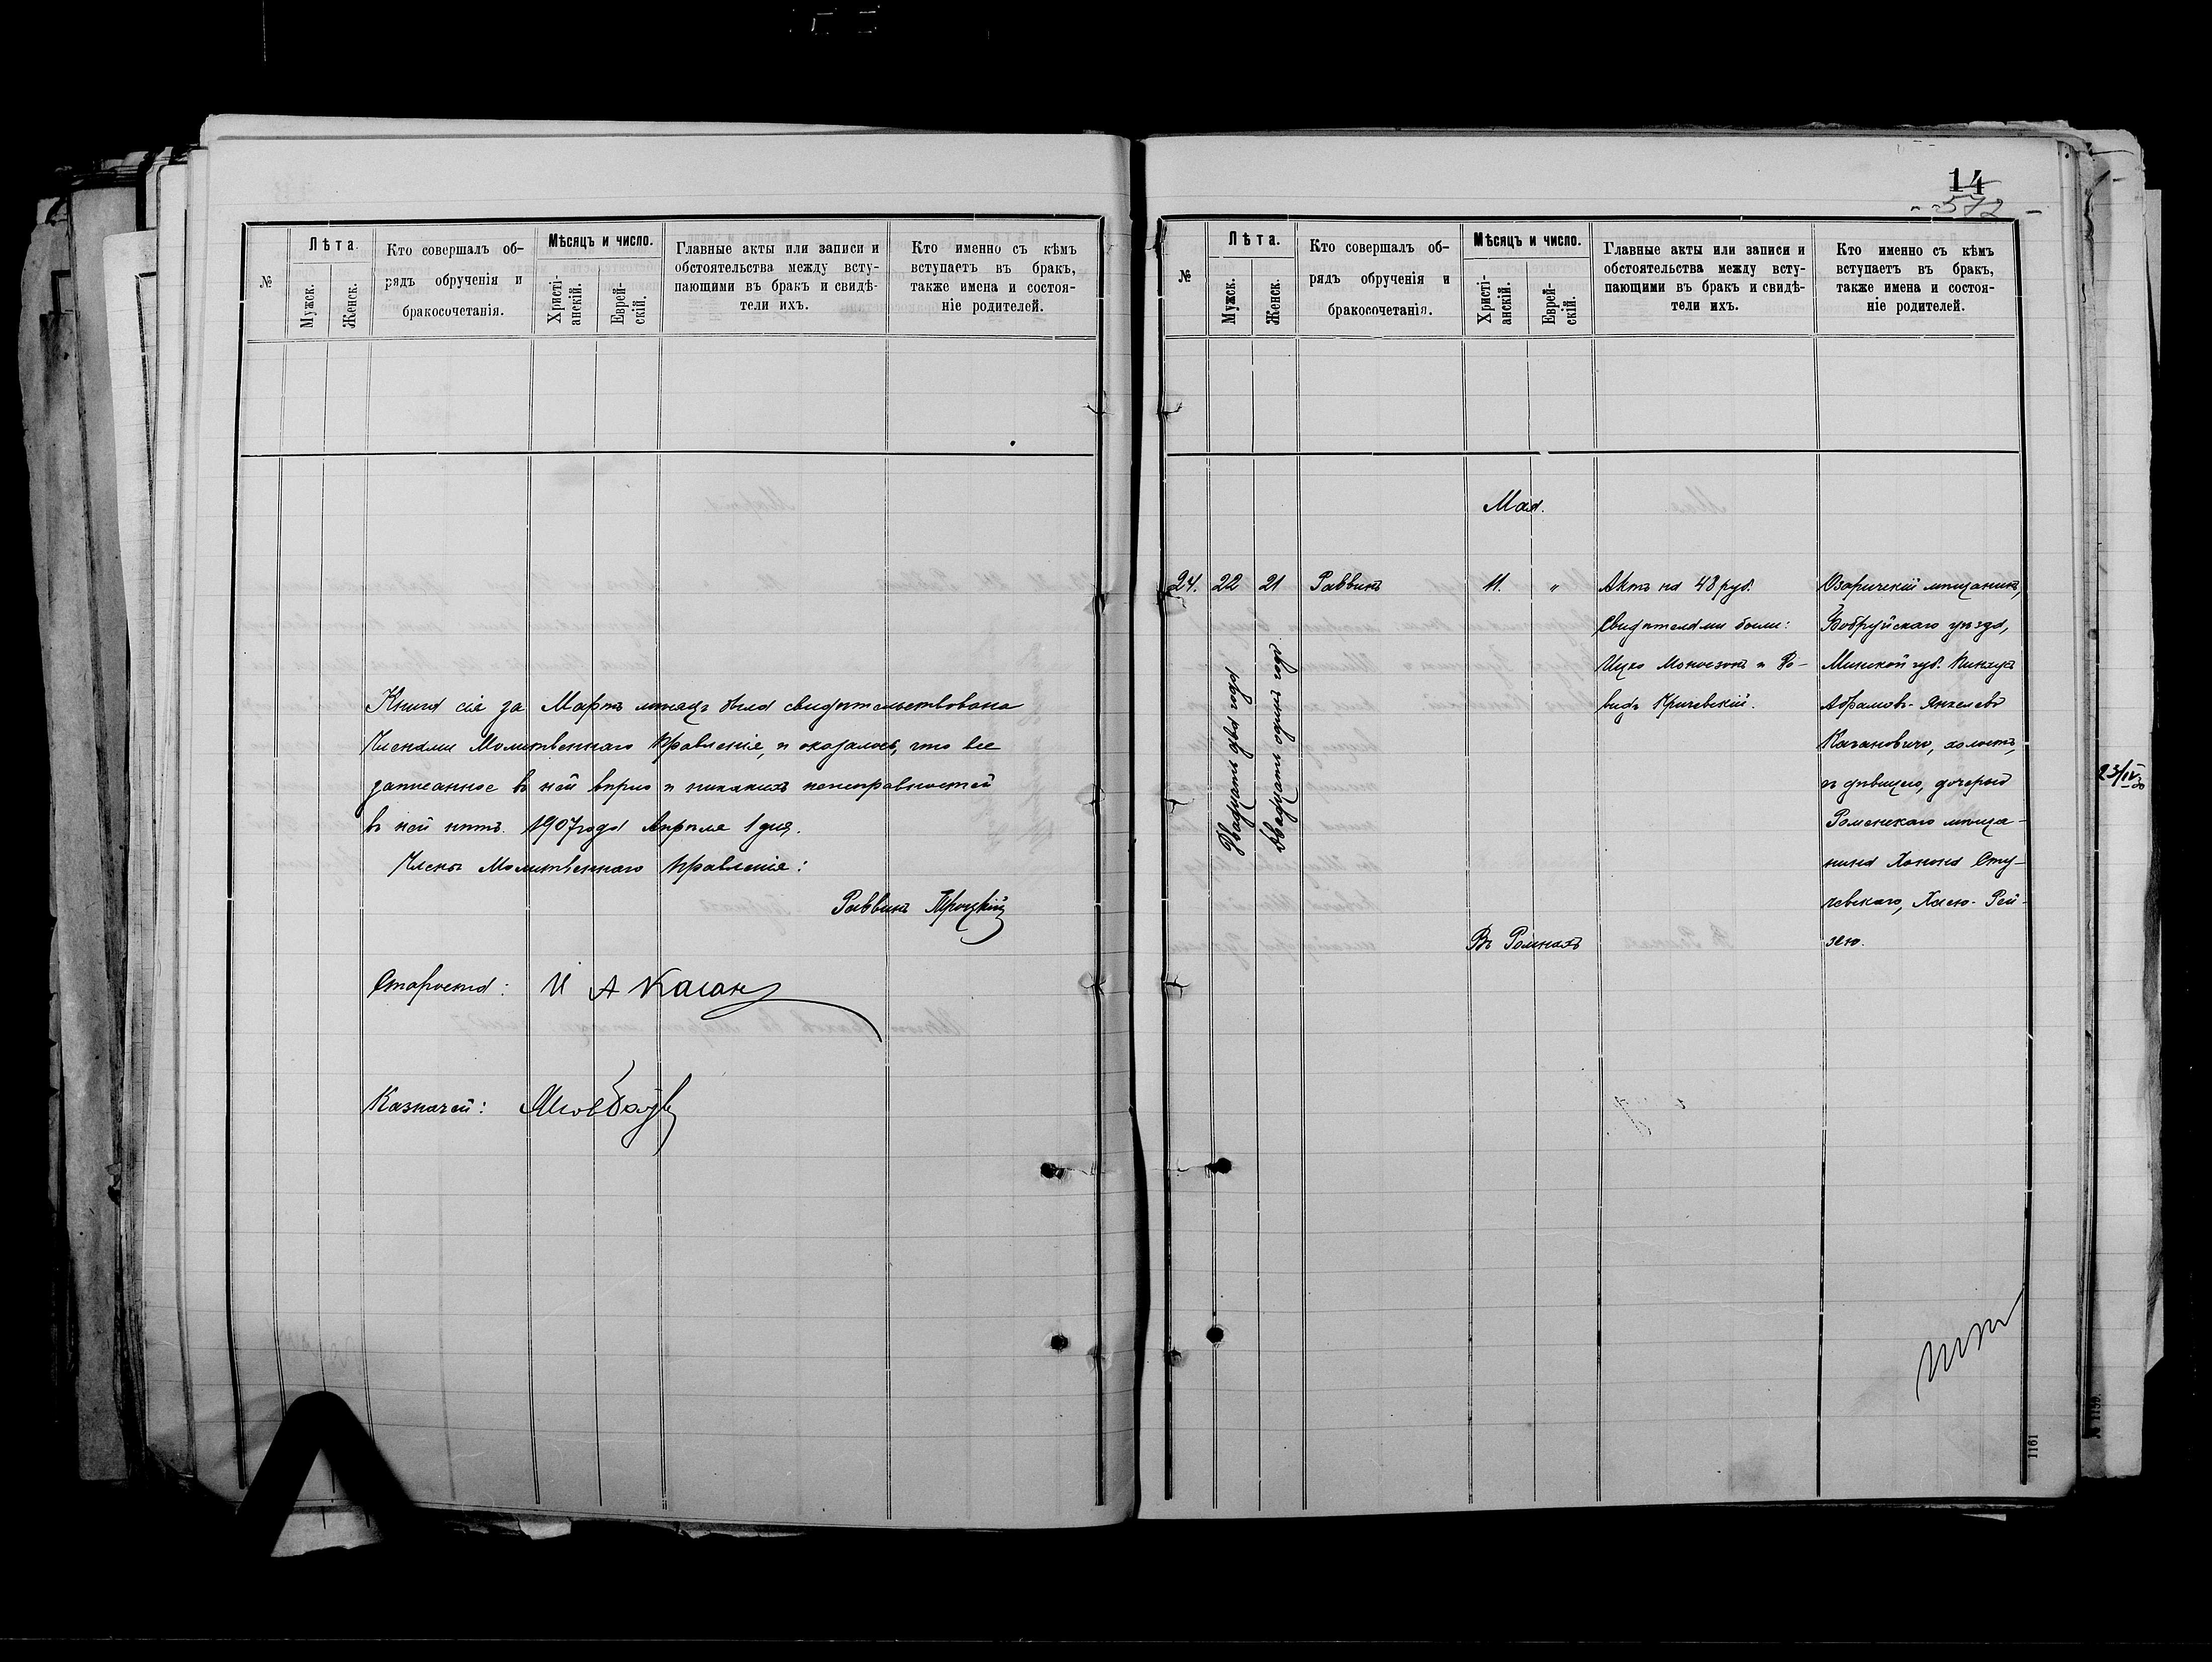 №
Лѣта.
Мужск.
Женск.
Кто совершалъ об-
рядъ обрученія и
бракосочетанія.
Мѣсяцъ и число.
Христі-
анскій.
Еврей-
скій.
Главные акты или записи и
обстоятельства между всту-
пающими въ бракъ и свидѣ-
тели ихъ.
Кто именно съ кѣмъ
вступаетъ въ бракъ,
также имена и состоя-
ніе родителей.
Книга сія за Мартъ мѣсяцъ была свидѣтельствована
Членами Молитвеннаго Правленія, и оказалось, что все
записанное въ ней вѣрно и никакихъ неисправностей
въ ней нѣтъ. 1907 года Апрѣля 1 дня.
Члены Молитвеннаго Правленія:
Раввинъ Троцкій
Староста: И А Каган
Казначей:
14
572
№
Лѣта.
Мужск.
Женск.
Кто совершалъ об-
рядъ обрученія и
бракосочетанія.
Мѣсяцъ и число.
Христі-
анскій.
Еврей-
скій.
Главные акты или записи и
обстоятельства между всту-
пающими въ бракъ и свидѣ-
тели ихъ.
Кто именно съ кѣмъ
вступаетъ въ бракъ,
также имена и состоя-
ніе родителей.
Мая.
24.
22
Двадцать два года
21
Двадцать одинъ годъ
Раввинъ
11.
"
Актъ на 48 руб.
Свидѣтелями были:
Ицко Моносзонъ и До-
видъ Кричевскій.
Озаричскій мѣщанинъ,
Бобруйскаго уѣзда,
Минской губ. Пинхусъ
Абрамовъ-Янкелевъ
Кагановичъ, холостъ,
съ дѣвицею, дочерью
Роменскаго мѣща-
нина Хонона Сту-
чевскаго, Хаею-Рей-
зею.
Въ Ромнахъ
1161
23/IV
№ 1159.